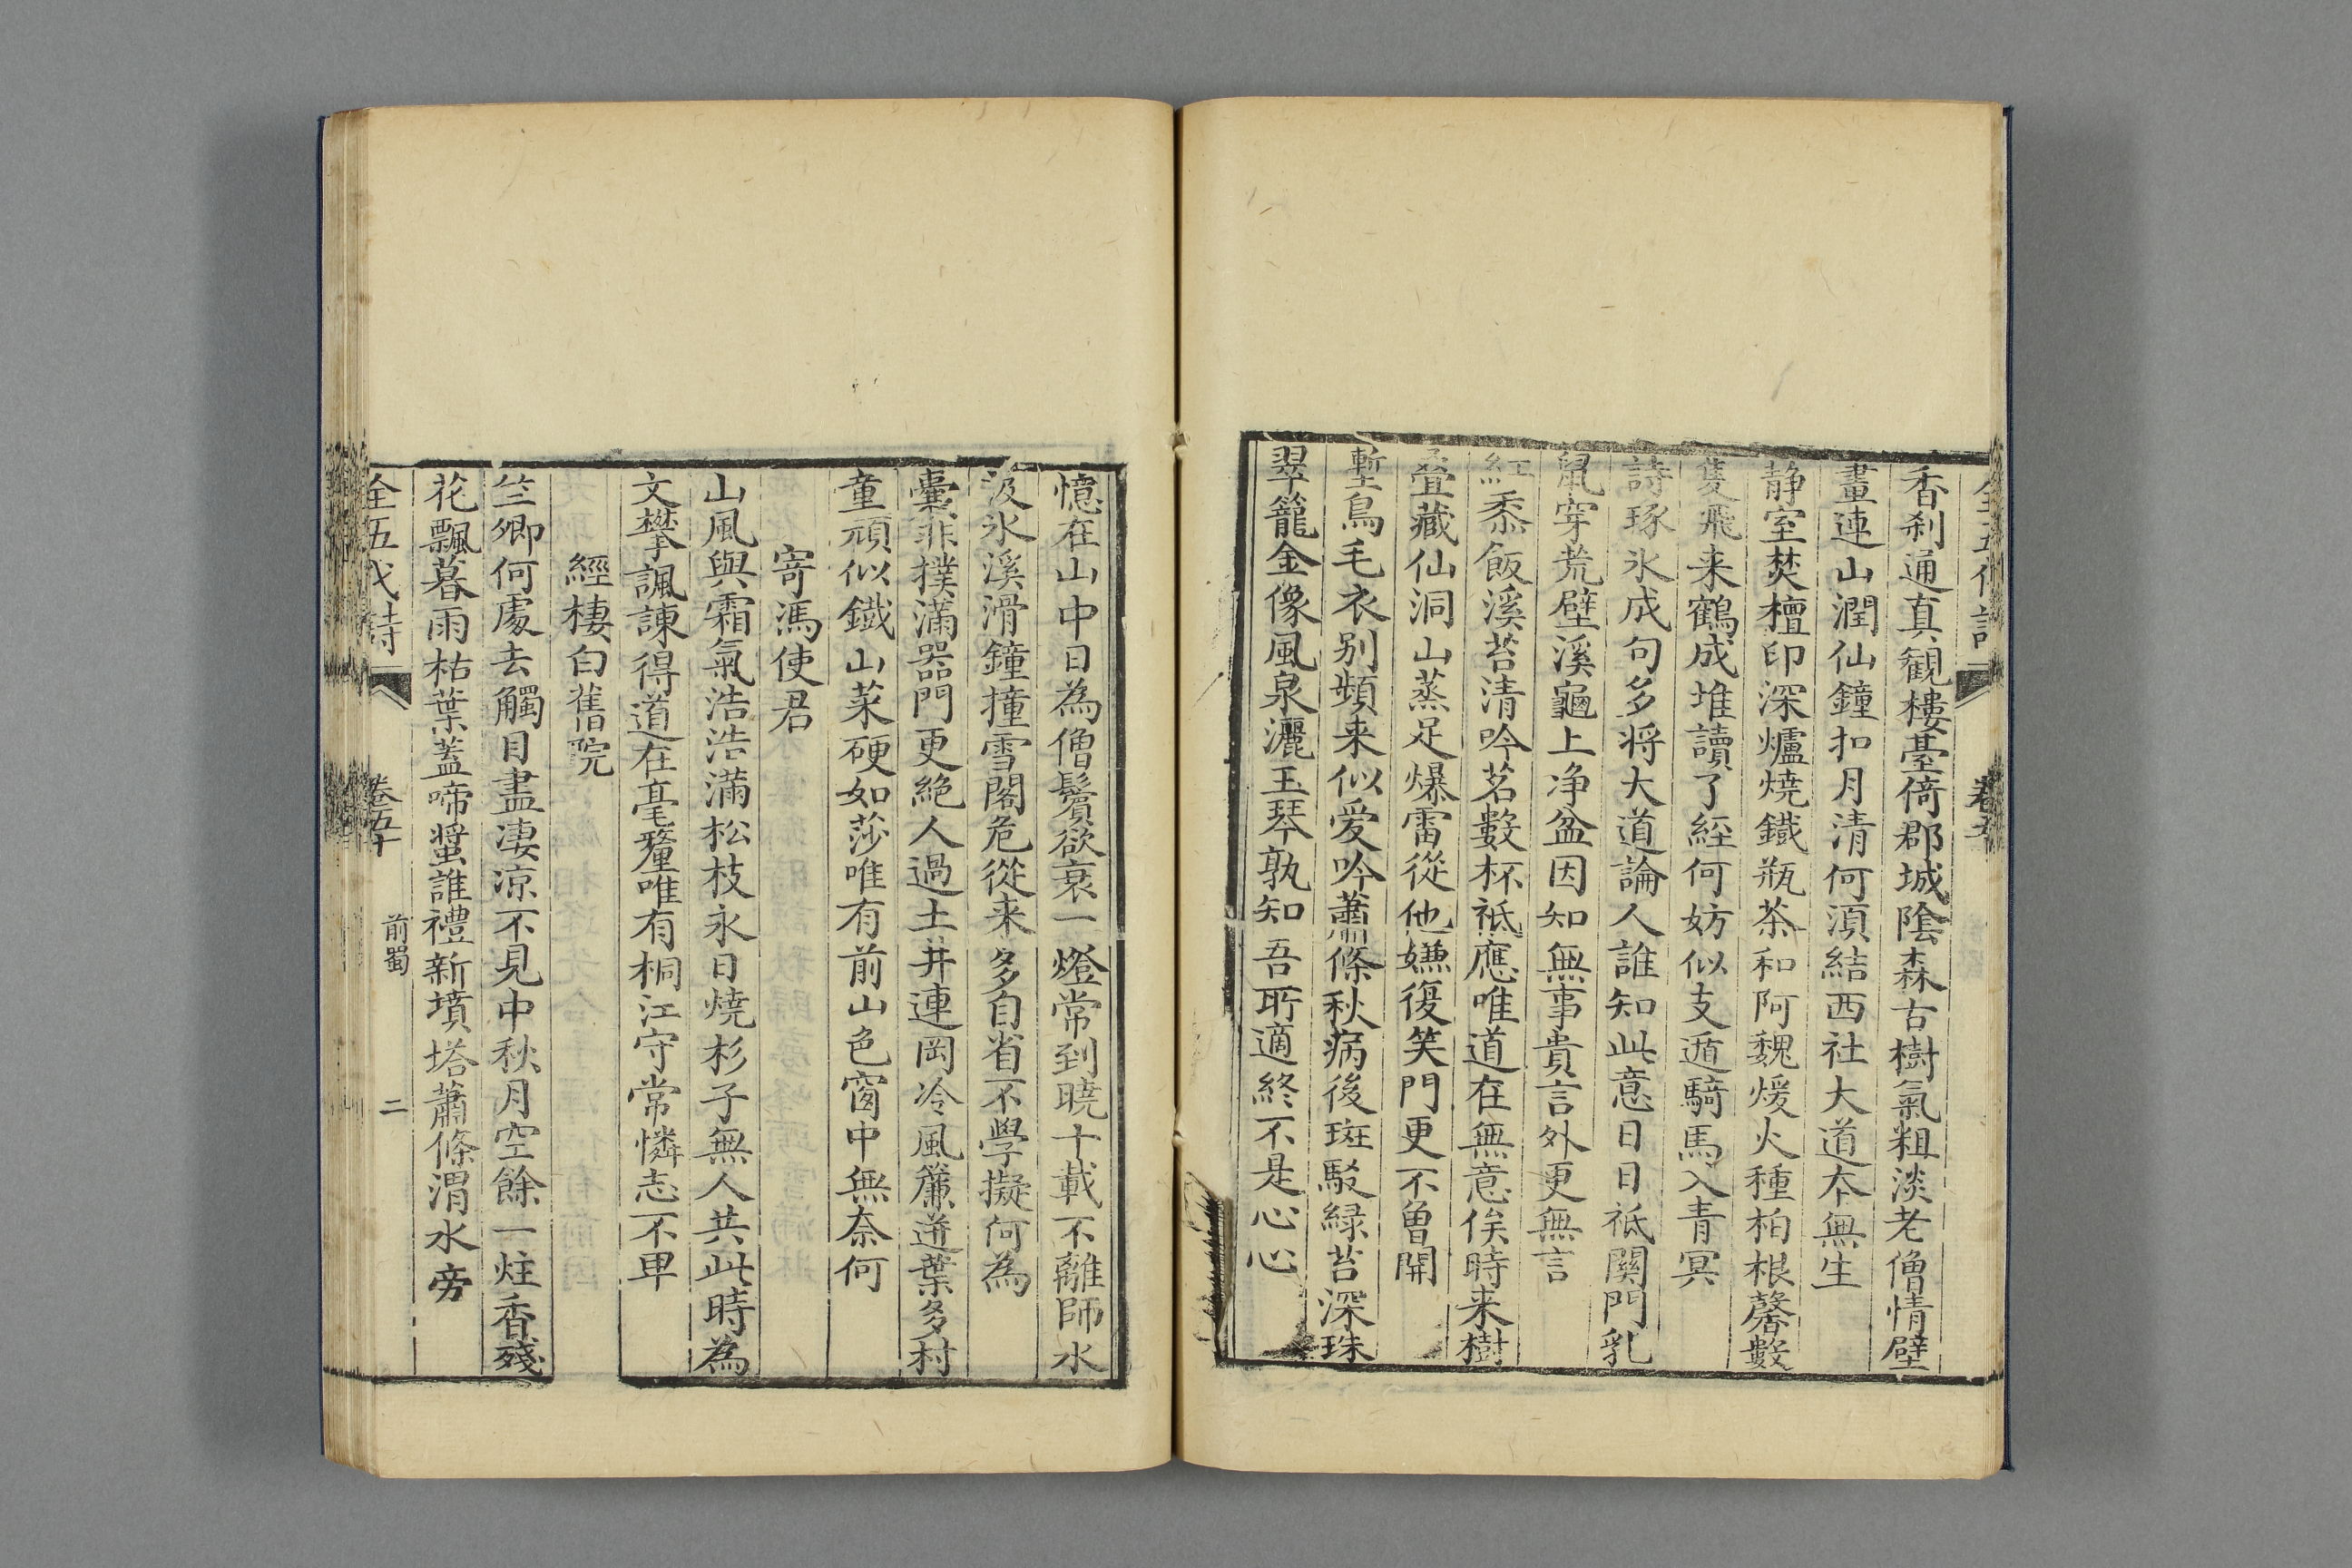 香刹通真觀樓臺倚郡城陰森古樹氣粗淡老僧情壁
畫連山潤仙鐘扣月清何湏結西社大道夲無生
静室焚檀印深爐燒鐵瓶茶和阿魏煖火種柏根馨數
隻飛来鶴成堆讀了經何妨似支遁騎馬入青冥
詩琢氷成句多将大道論人誰知此意日日祗關門乳
鼠穿荒壁溪龜上净盆因知無事貴言外更無言
紅黍飯溪苔清吟茗數杯祗應唯道在無意俟時来樹
叠藏仙洞山蒸足爆雷從他嫌復笑門更不曾開
塹鳥毛衣别頻来似爱吟蕭條秋病後斑駁緑苔深珠
翠籠金像風泉灑玉琴孰知吾所適終不是心心
憶在山中日為僧鬢欲衰一燈常到曉十載不離師水
汲氷溪滑鐘撞雪閣危從来多自省不學擬何為
囊非撲滿器門更絶人過土井連岡冷風簾迸葉多村
童頑似鐵山菜硬如莎唯有前山色窗中無奈何
寄馮使君
山風與霜氣浩浩滿松枝永日燒杉子無人共此時為
文攀諷諫得道在毫釐唯有桐江守常憐志不卑
經棲白舊院
竺卿何處去觸目盡凄凉不見中秋月空餘一炷香殘
花飄暮雨枯葉蓋啼螿誰禮新墳塔蕭條渭水旁
全五代詩 卷五十 前蜀 二